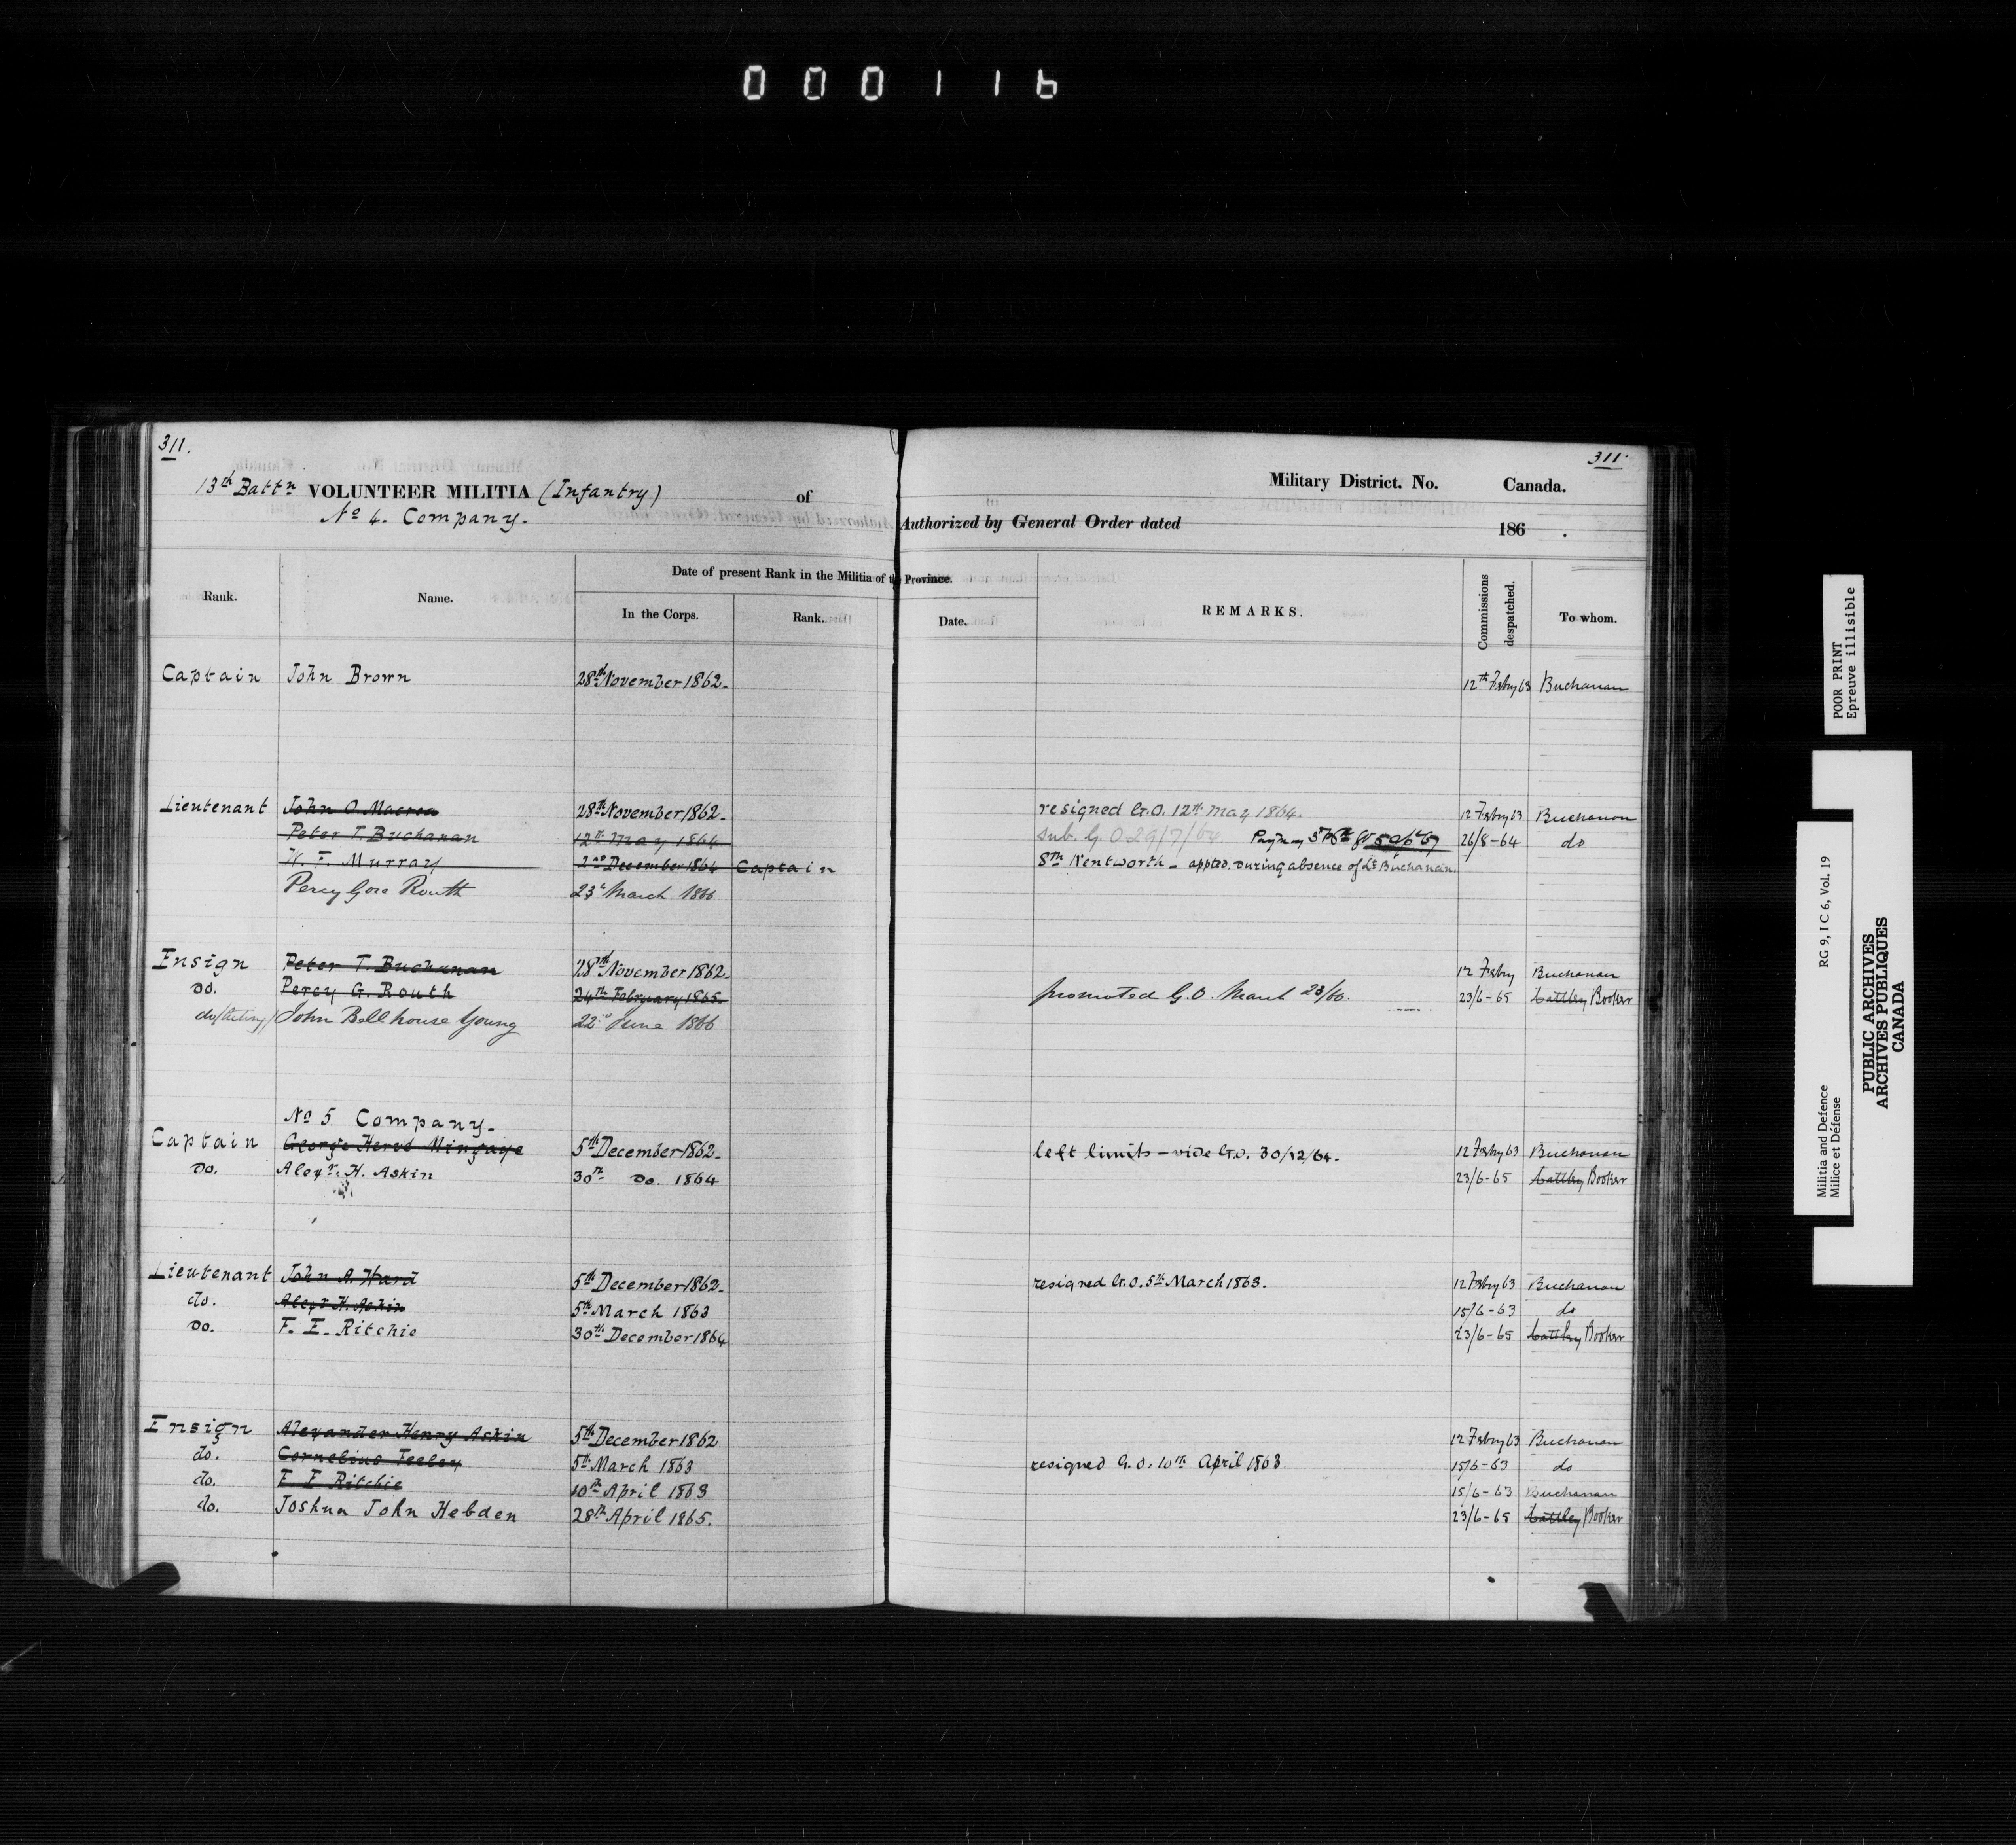 000116
311.
311.
13th Battn VOLUNTEER MILITIA (Infantry) of Military District. No. Canada.
No 4. Company. Authorized by General Order dated 186 .
Date of present Rank in the Militia of the Province.
Rank. Name. In the Corps. Rank. Date. REMARKS. Commissions despatched. To whom.
Captain John Brown 28th November 1862. 12th Febry 63 Buchanan
Lieutenant John O. Macrea 28th November 1862. resigned G.O. 12th May 1864. 12 Febry 63 Buchanan
Peter T. Buchanan 12th May 1864 sub. G.O 29/7/64 26/8-64 do
Murray 2nd December 1864 Captain 8th Wentworth - appted. during absence of Lt Buchanan.
Percy Gore Routh 23d March 1866
Ensign Peter T. Buchanan 28th November 1862. 12 Febry Buchanan
Do. Percy G. Routh 24th February 1865. promoted G.O. March 23/66. 23/6-65 Cattley Booker
do (Acting) John Bellhouse Young 22nd June 1866
No 5 Company.
Captain George Herod Mingaye 5th December 1862. left limits - vide G.O. 30/12/64. 12 Febry 63 Buchanan
Do. Alexr. H. Askin 30th Do. 1864 23/6-65 Cattley Booker
Lieutenant John A. Ward 5th December 1862. resigned G.O. 5th March 1863. 12 Febry 63 Buchanan
do. Alexr H. Askin 5th March 1863 15/6-63 do
Do. F. E. Ritchie 30th December 1864 23/6-65 Cattley Booker
Ensign Alexander Henry Askin 5th December 1862 12 Febry 63 Buchanan
do. Cornelius Feeley 5th March 1863 resigned G.O. 10th April 1863. 15/6-63 do
do. F E Ritchie 10th April 1863 15/6-63 Buchanan
do. Joshua John Hebden 28th April 1865. 23/6-65 Cattley Booker
POOR PRINT
Epreuve illisible
Militia and Defence RG 9, I C 6, Vol. 19
Milice et Défense
PUBLIC ARCHIVES
ARCHIVES PUBLIQUES
CANADA